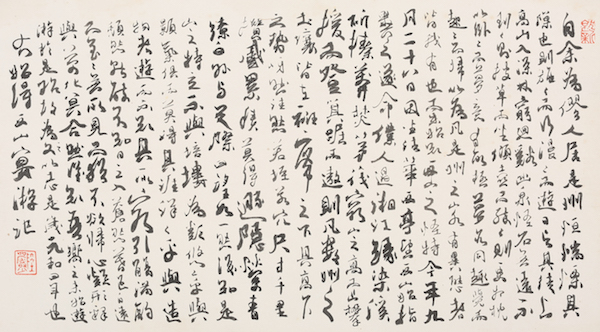 自余為僇人居是州恒惴慄其
隙也則施施而行漫漫而遊日與其徒上
高山入深林窮迴溪幽泉怪石無遠不
到到則披草而坐傾壺而醉醉則更相枕
以臥臥而夢意有所極夢亦同趣覺而
起起而歸以為凡是州之山水有異態者
皆我有也而未始知西山之怪特今年九
月二十八日因坐法華西亭望西山始指
異之遂命僕人過湘江緣染溪
斫榛莽焚茅茷窮山之高而止攀
援而登箕踞而遨則凡數州之
土壤皆在衽席之下其高下
之勢岈然洼然若垤若穴尺寸千里
攢蹙累積莫得遯隱縈青
繚白外與天際四望如一然後知是
山之特立不與培塿為類悠悠乎與
顥氣俱而莫得其涯洋洋乎與造
物者遊而不知其所窮引觴滿酌
頹然就醉不知日之入蒼然暮色自遠
而至至無所見而猶不欲歸心凝形釋
與萬化冥合然後知吾嚮之未始遊
遊於是乎始故為之文以志是歲元和四年也
右始得西山宴游記